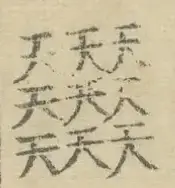 天天天
天天天
天天天